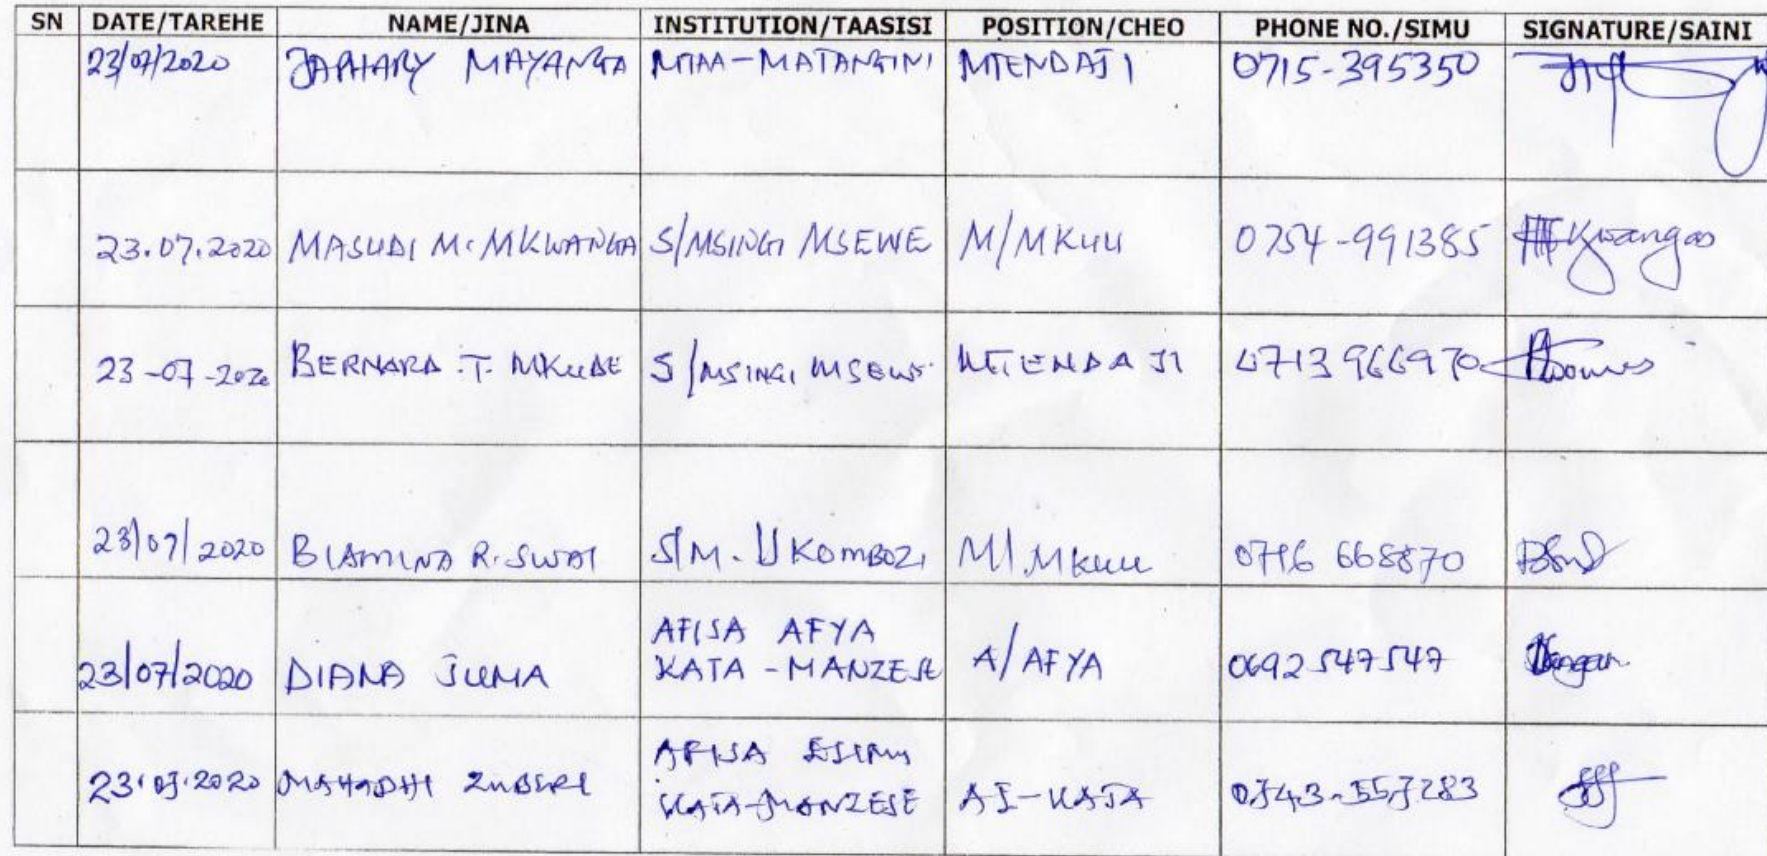 SN DATE/TAREHE NAME/JINA INSTITUTION/TAASISI POSITION/CHEO PHONE NO./SIMU SIGNATURE/SAINI
23/07/2020 JAPHARY MAYANGA MTAA-MATANGINI MTENDAJI 0715-395350
23.07.2020 MASUDI M. MKWANGA S/MSINGI MSEWE M/MKUU 0754-991385
23-07-2020 BERNARD T. MKUDE S/MSINGI MSEWE MTENDAJI 0713 966970
23/07/2020 BIAMINA R. SWAI S/M. UKOMBOZI M/MKUU 668870
AFISA AFYA
23/07/2020 DIANA JUMA KATA-MANZESE A/AFYA 0692 547547
AFISA ELIMU
23.07.2020 MAHADHI ZUBERI KATA-MANZESE AE-KATA